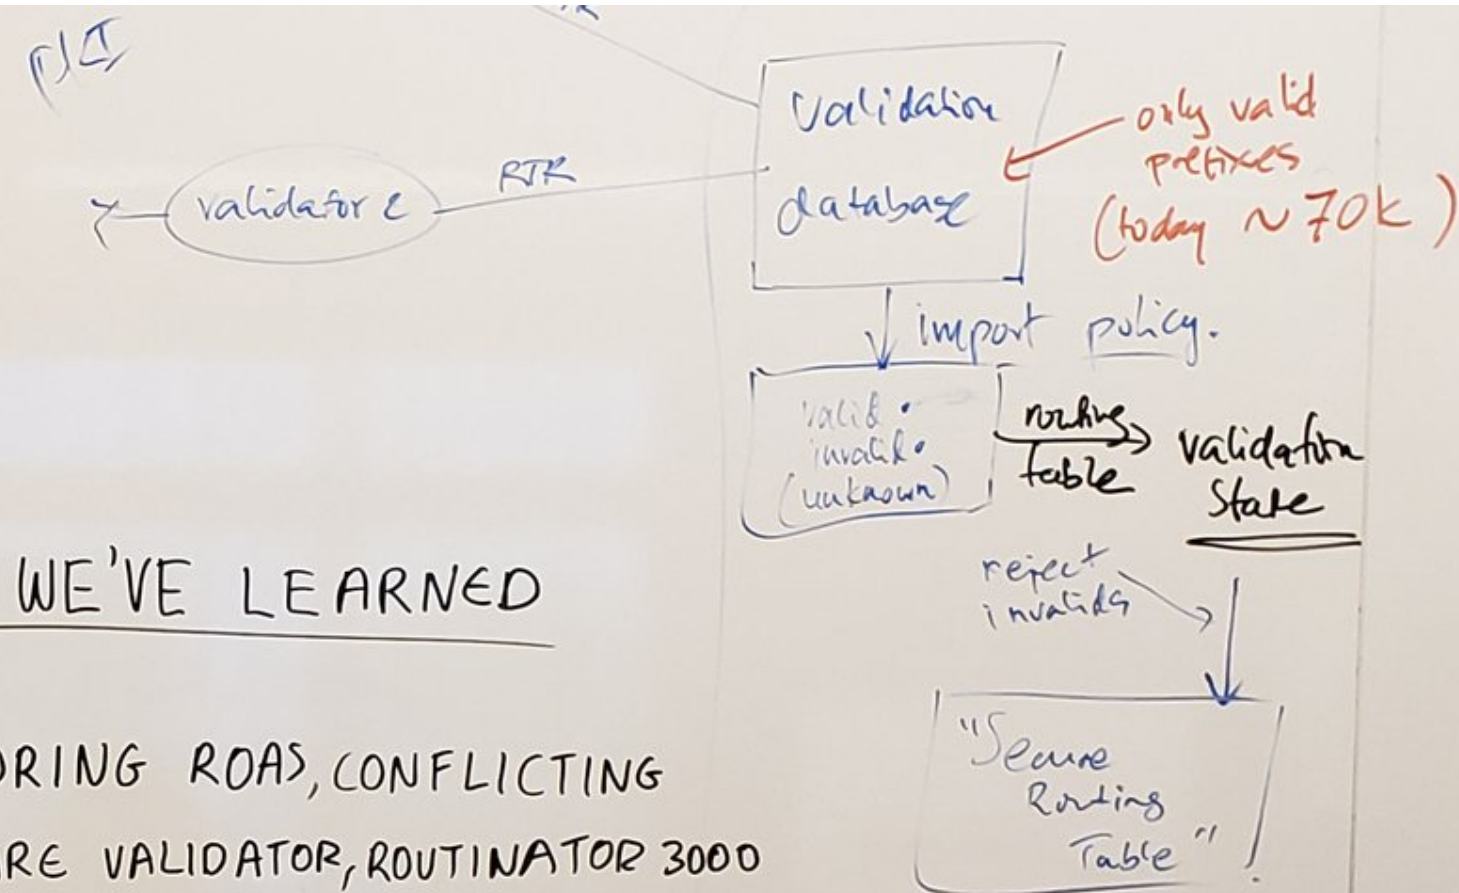 validator 2
RTR
validation
database
only valid
prefixes
(today ~70k)
import policy.
valid •
invalid •
(unknown)
routing
table
validation
state
reject
invalids
"Secure
Routing
Table"
WE'VE LEARNED
ORING ROAS, CONFLICTING
RE VALIDATOR, ROUTINATOR 3000